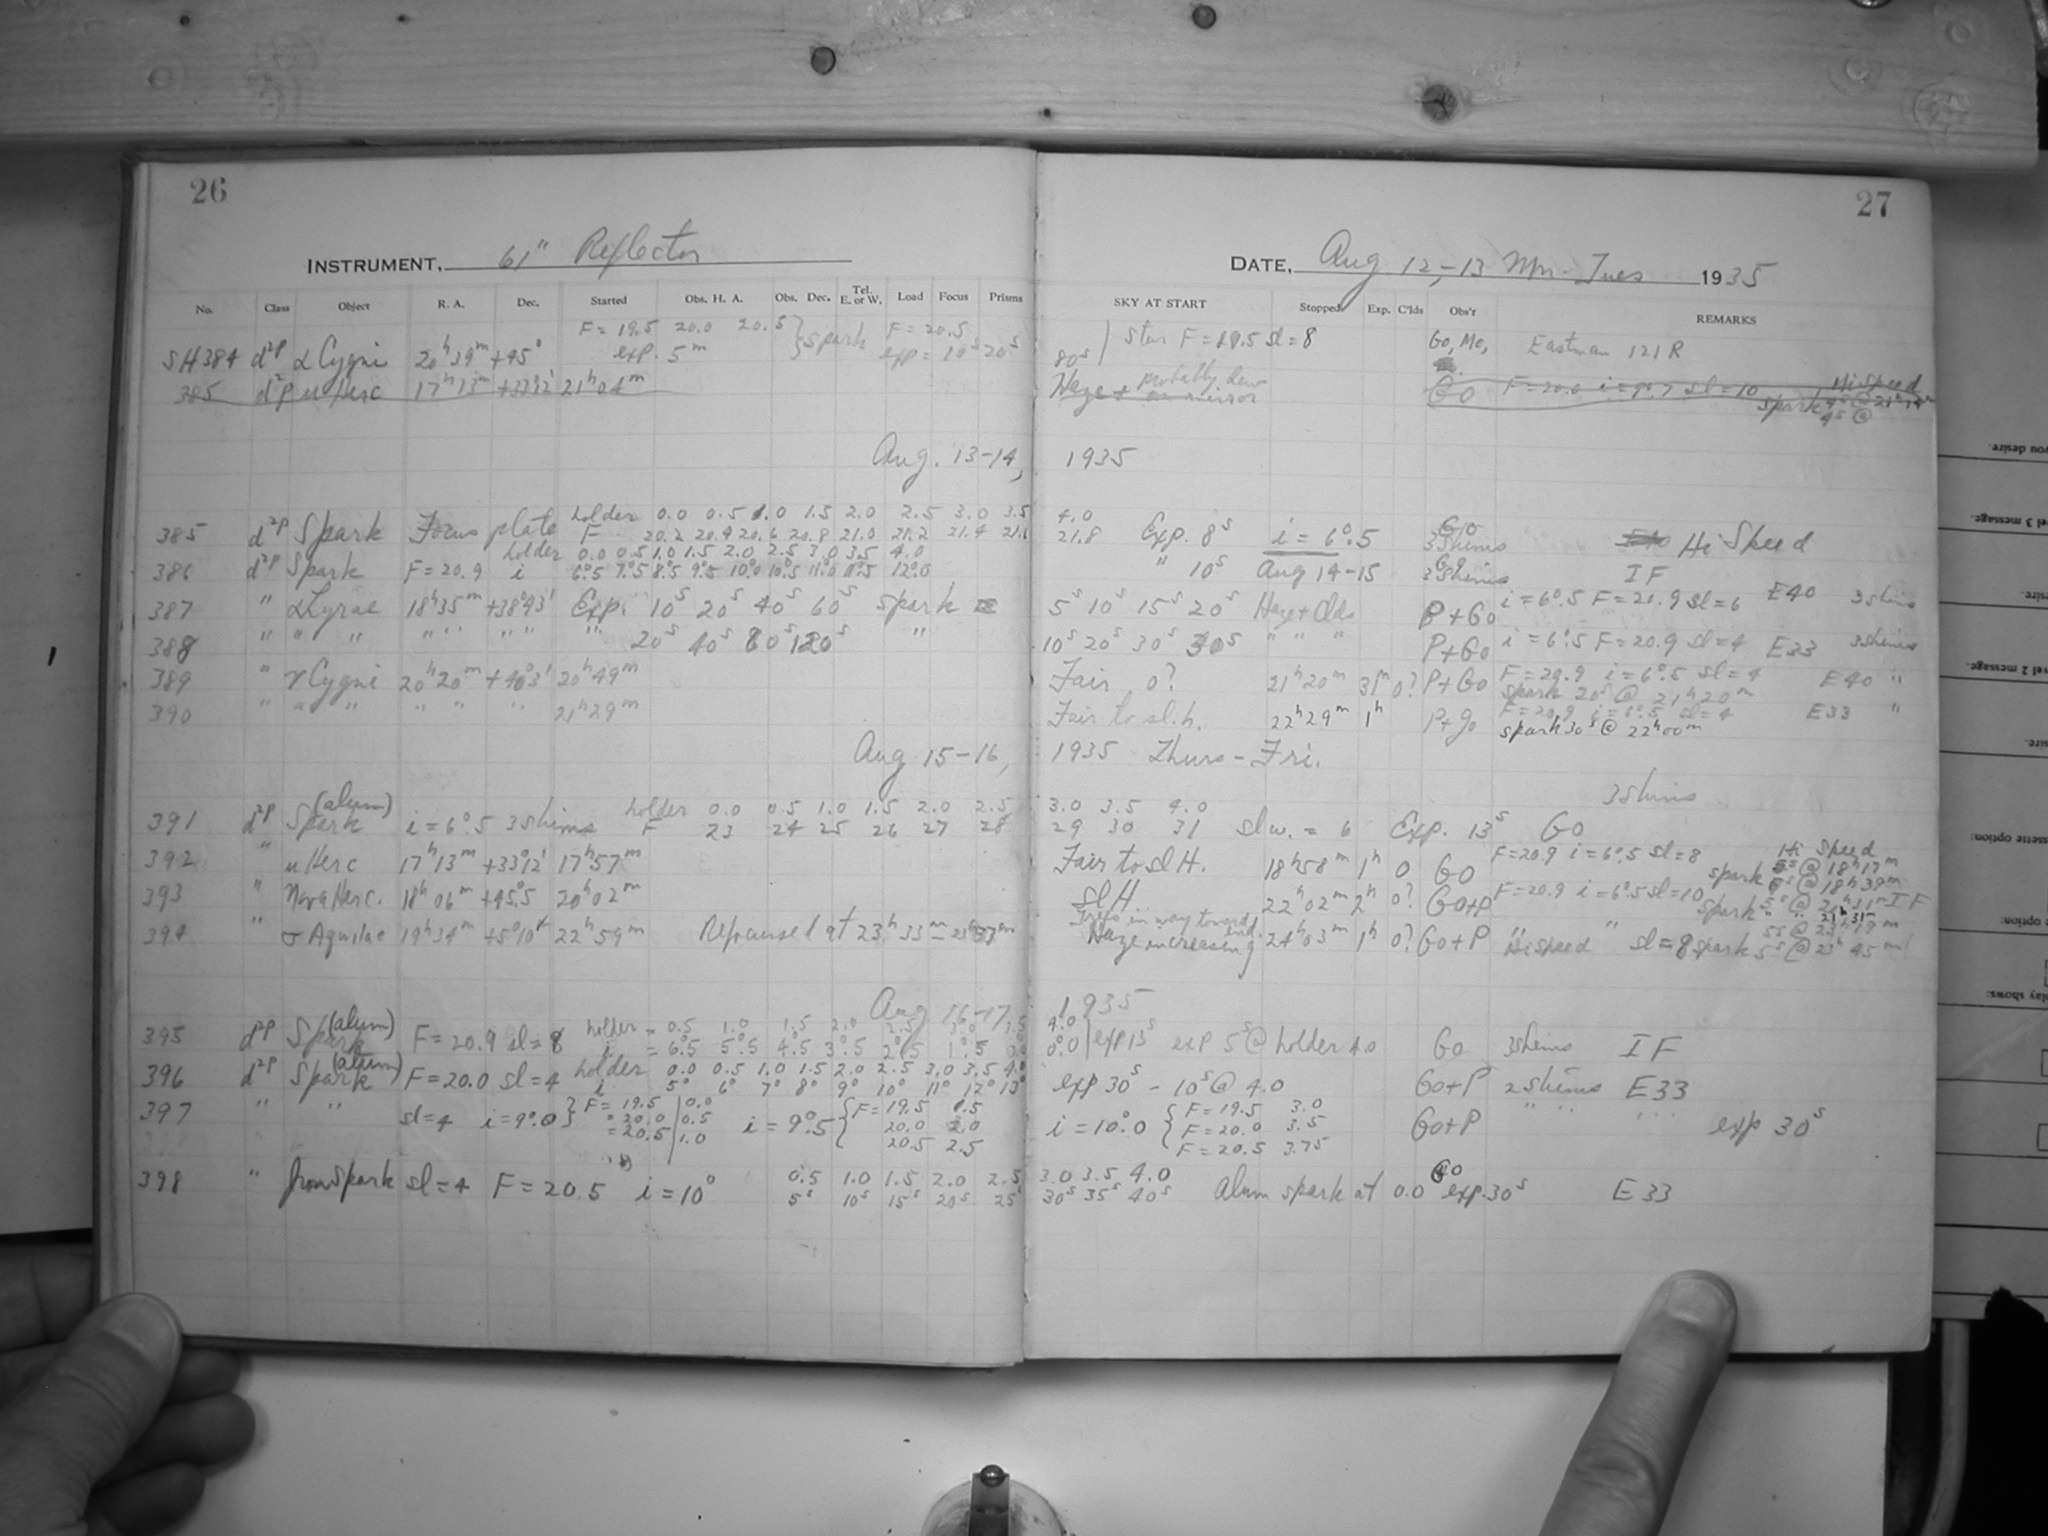 26
27
INSTRUMENT, 61" Reflector
DATE, Aug 12-13 Mon-Tues 1935
No. Class Object R. A. Dec. Started Obs. H. A. Obs. Dec. Tel. E. or W. Load Focus Prisms SKY AT START Stopped Exp. C'lds Obs'r REMARKS
SH384 d²P α Cygni 20ʰ39ᵐ +45° F = 19.5 20.0 20.5 } spark F = 20.5 80ˢ | Star F = 19.5 sl = 8 Go, Me, Eastman 121 R
exp. 5ᵐ exp = 10ˢ 20ˢ
385 d²P u Herc 17ʰ13ᵐ +33°12' 21ʰ04ᵐ Haze + probably dew on mirror Go F = 20.0 i = 9°.7 sl = 10 Hi Speed
Aug. 13-14, 1935
385 d²P Spark Focus plate holder 0.0 0.5 1.0 1.5 2.0 2.5 3.0 3.5 4.0
F 20.2 20.4 20.6 20.8 21.0 21.2 21.4 21.6 21.8 Exp. 8ˢ i = 6°.5 Go 3 Shims Hi Speed
386 d²P Spark F = 20.9 holder 0.0 0.5 1.0 1.5 2.0 2.5 3.0 3.5 4.0
i 6°.5 7°.5 8°.5 9°.5 10°.0 10°.5 11°.0 11°.5 12°.0 " 10ˢ Aug 14-15 Go 3 Shims IF
387 " α Lyrae 18ʰ35ᵐ +38°43' Exp. 10ˢ 20ˢ 40ˢ 60ˢ spark 5ˢ 10ˢ 15ˢ 20ˢ Haze + Clds P + Go i = 6°.5 F = 21.9 sl = 6 E40 3 shims
388 " " " " " " " " 20ˢ 40ˢ 80ˢ 120ˢ " 10ˢ 20ˢ 30ˢ 30ˢ " " " P + Go i = 6°.5 F = 20.9 sl = 4 E33 3 shims
389 " γ Cygni 20ʰ20ᵐ +40°3' 20ʰ49ᵐ Fair 0? 21ʰ20ᵐ 31ᵐ 0? P + Go F = 20.9 i = 6°.5 sl = 4 E40 "
spark 20ˢ @ 21ʰ20ᵐ
390 " " " " " " 21ʰ29ᵐ Fair to sl. h. 22ʰ29ᵐ 1ʰ P + Go F = 20.9 i = 6°.5 sl = 4 E33 "
spark 30ˢ @ 22ʰ00ᵐ
Aug 15-16, 1935 Thurs - Fri.
391 d²P Spark (alum) i = 6°.5 3 shims holder 0.0 0.5 1.0 1.5 2.0 2.5 3.0 3.5 4.0 3 shims
F 23 24 25 26 27 28 29 30 31 sl w. = 6 Exp. 13ˢ Go
392 " u Herc 17ʰ13ᵐ +33°12' 17ʰ57ᵐ Fair to sl H. 18ʰ58ᵐ 1ʰ 0 Go F = 20.9 i = 6°.5 sl = 8 Hi Speed
spark 5ˢ @ 18ʰ17ᵐ
@ 18ʰ39ᵐ
393 " Nova Herc. 18ʰ06ᵐ +45°.5 20ʰ02ᵐ sl H 22ʰ02ᵐ 2ʰ 0? Go + P F = 20.9 i = 6°.5 sl = 10 spark IF
394 " σ Aquilae 19ʰ34ᵐ +5°10' 22ʰ59ᵐ Refocused at 23ʰ33ᵐ - 23ʰ37ᵐ Trees in way toward end. Haze increasing 24ʰ03ᵐ 1ʰ 0? Go + P " " Hi speed sl = 8 spark 5ˢ @ 23ʰ19ᵐ
5ˢ @ 23ʰ45ᵐ
Aug 16-17, 1935
395 d²P Spark (alum) F = 20.9 sl = 8 holder = 0.5 1.0 1.5 2.0 2.5 3.0 3.5 4.0
i = 6°.5 5°.5 4°.5 3°.5 2°.5 1°.5 0.0 | exp 13ˢ exp 5ˢ @ holder 4.0 Go 3 shims IF
396 d²P Spark (alum) F = 20.0 sl = 4 holder 0.0 0.5 1.0 1.5 2.0 2.5 3.0 3.5 4.0
i 5° 6° 7° 8° 9° 10° 11° 12° 13° exp 30ˢ - 10ˢ @ 4.0 Go + P 2 shims E33
397 " " sl = 4 i = 9°.0 } F = 19.5 | 0.0 i = 9°.5 { F = 19.5 1.5 i = 10°.0 { F = 19.5 3.0 Go + P " " " " exp 30ˢ
= 20.0 | 0.5 20.0 2.0 F = 20.0 3.5
= 20.5 | 1.0 20.5 2.5 F = 20.5 3.75
398 " Iron Spark sl = 4 F = 20.5 i = 10° 0.5 1.0 1.5 2.0 2.5 3.0 3.5 4.0 Alum spark at 0.0 exp. 30ˢ Go E33
5ˢ 10ˢ 15ˢ 20ˢ 25ˢ 30ˢ 35ˢ 40ˢ